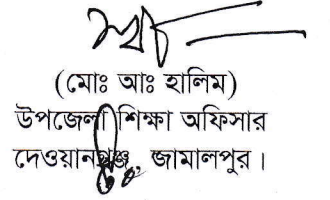 (মোঃ আঃ হালিম)
উপজেলা শিক্ষা অফিসার
দেওয়ানগঞ্জ, জামালপুর।